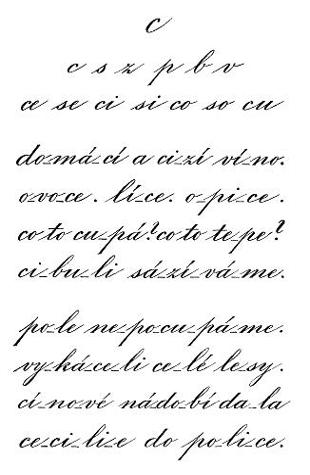 c
c s z p b v
ce se ci si co so cu
do-má-cí a ci-zí ví-no.
o-vo-ce. lí-ce. o-pi-ce.
co to cu-pá? co to te-pe?
ci-bu-li sá-zí-vá-me.
po-le ne-po-cu-pá-me.
vy-ká-ce-li ce-lé le-sy.
cí-no-vé ná-do-bí da-la
ce-ci-li-e do po-li-ce.